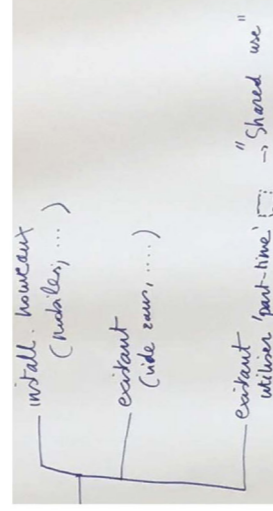 install. nouveaux
(mobiles, ...)
existant
(vide sans, ....)
existant
utiliser 'part-time' → "Shared use"